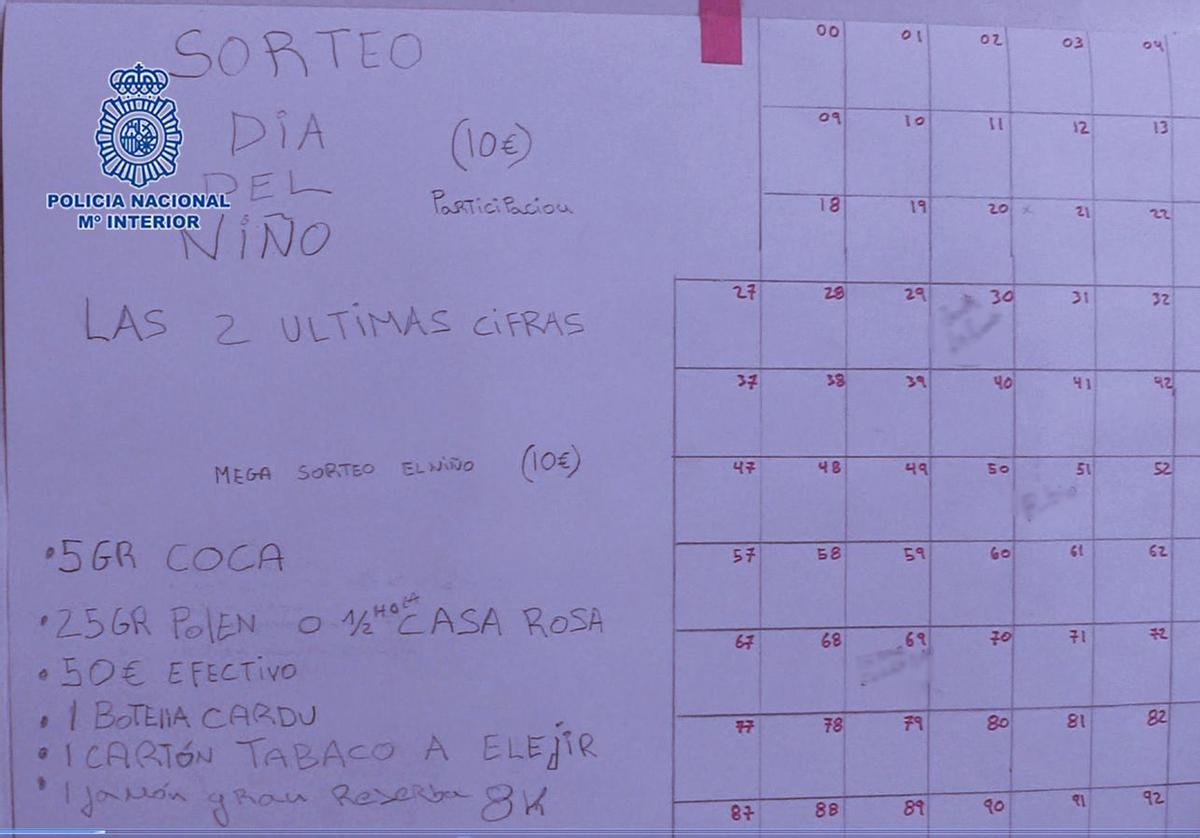 SORTEO
DiA
DEL
NiÑO
(10€)
PARTiCiPACiOU
POLICIA NACIONAL
Mº INTERIOR
LAS 2 ULTiMAS CiFRAS
MEGA SORTEO EL NiÑO (10€)
•5GR COCA
•25GR PolEN O 1/2 HORA CASA ROSA
•50€ EFECTiVO
•1 BOTEllA CARDU
•1 CARTÓN TABACO A ELEjiR
•1 jaMón gran Reserba 8K
00 01 02 03 04
09 10 11 12 13
18 19 20 21 22
27 28 29 30 31 32
37 38 39 40 41 42
47 48 49 50 51 52
57 58 59 60 61 62
67 68 69 70 71 72
77 78 79 80 81 82
87 88 89 90 91 92